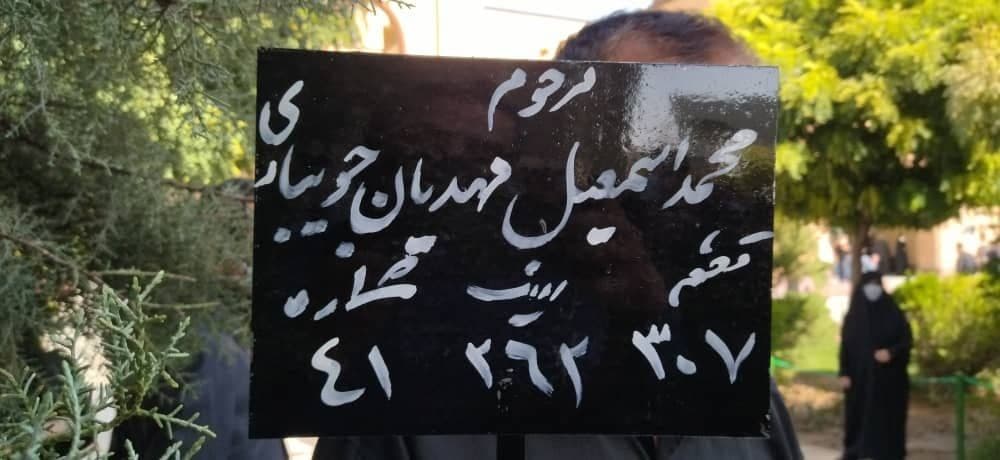 مرحوم
محمد اسمعیل مهدیان جویباری
قطعه ردیف شماره
۳۰۷ ۲۶۲ ٤١